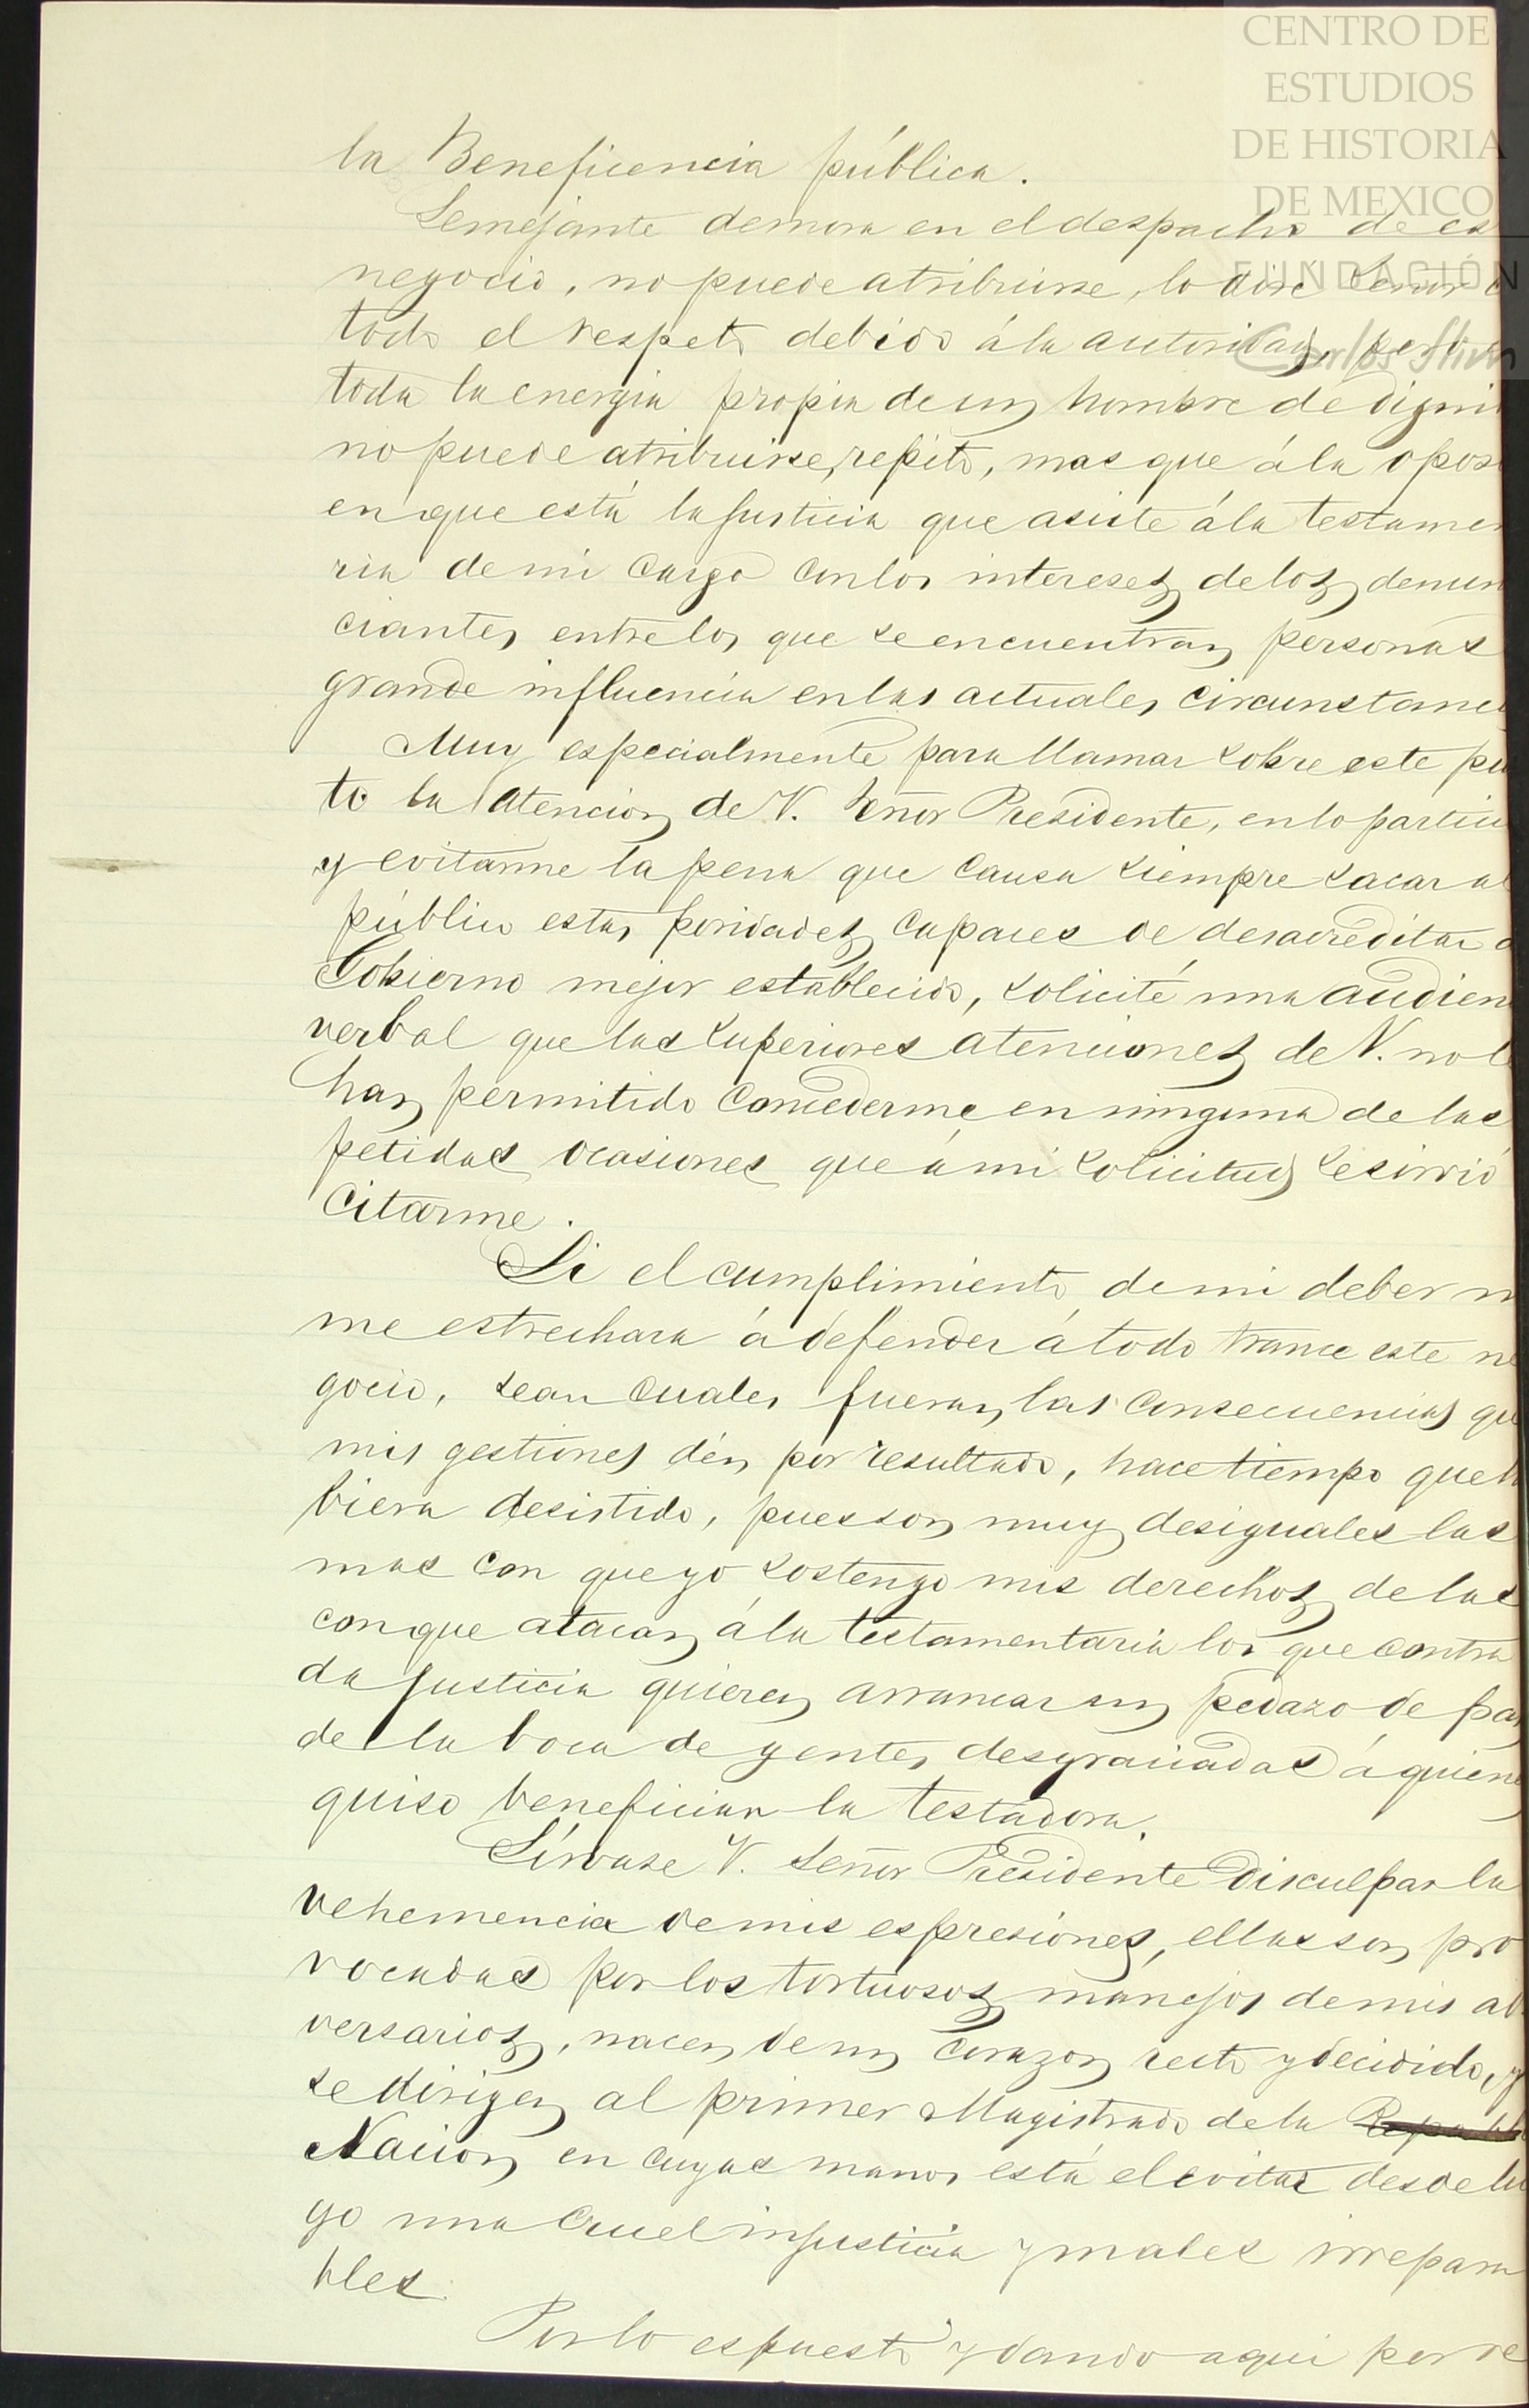 CENTRO DE
ESTUDIOS
DE HISTORIA
DE MEXICO
FUNDACIÓN
Carlos Slim
la Beneficencia pública.
Semejante demora en el despacho de es
negocio, no puede atribuirse, lo dire Señor
todo el respeto debido á la autoridad, pero
toda la energia propia de un hombre de digni
no puede atribuirse, repito, mas que á la oposi
en que está la justicia que asiste á la testamen
ria de mi cargo con los intereses de los denun
ciantes entre los que se encuentran personas
grande influencia en las actuales circunstanci
Muy especialmente para llamar sobre este pu
to la atencion de V. Señor Presidente, en lo particu
y evitarme la pena que causa siempre sacar al
público estas poridades capaces de desacreditar
Gobierno mejor establecido, solicité una audien
verbal que las superiores atenciones de V. no l
han permitido concederme en ninguna de las
petidas ocasiones que á mi solicitud se sirvió
citarme.
Si el cumplimiento de mi deber n
me estrechara á defender á todo trance este ne
gocio, sean cuales fueran las consecuencias qu
mis gestiones dén por resultado, hace tiempo que h
biera desistido, pues son muy desiguales las
mas con que yo sostengo mis derechos de las
con que atacan á la testamentaria los que contra
da justicia quieren arrancar un pedazo de pan
de la boca de gentes desgraciadas á quiene
quiso beneficiar la testadora.
Sírvase V. Señor Presidente disculpar la
vehemencia de mis espresiones, ellas son pro
vocadas por los tortuosos manejos de mis ad
versarios, nacen de un corazon recto y decidido, y
se dirigen al primer Magistrado de la Repúbli
Nacion en cuyas manos está el evitar desde lu
go una cruel injusticia y males irrepara
bles.
Por lo espuesto y dando aqui por re